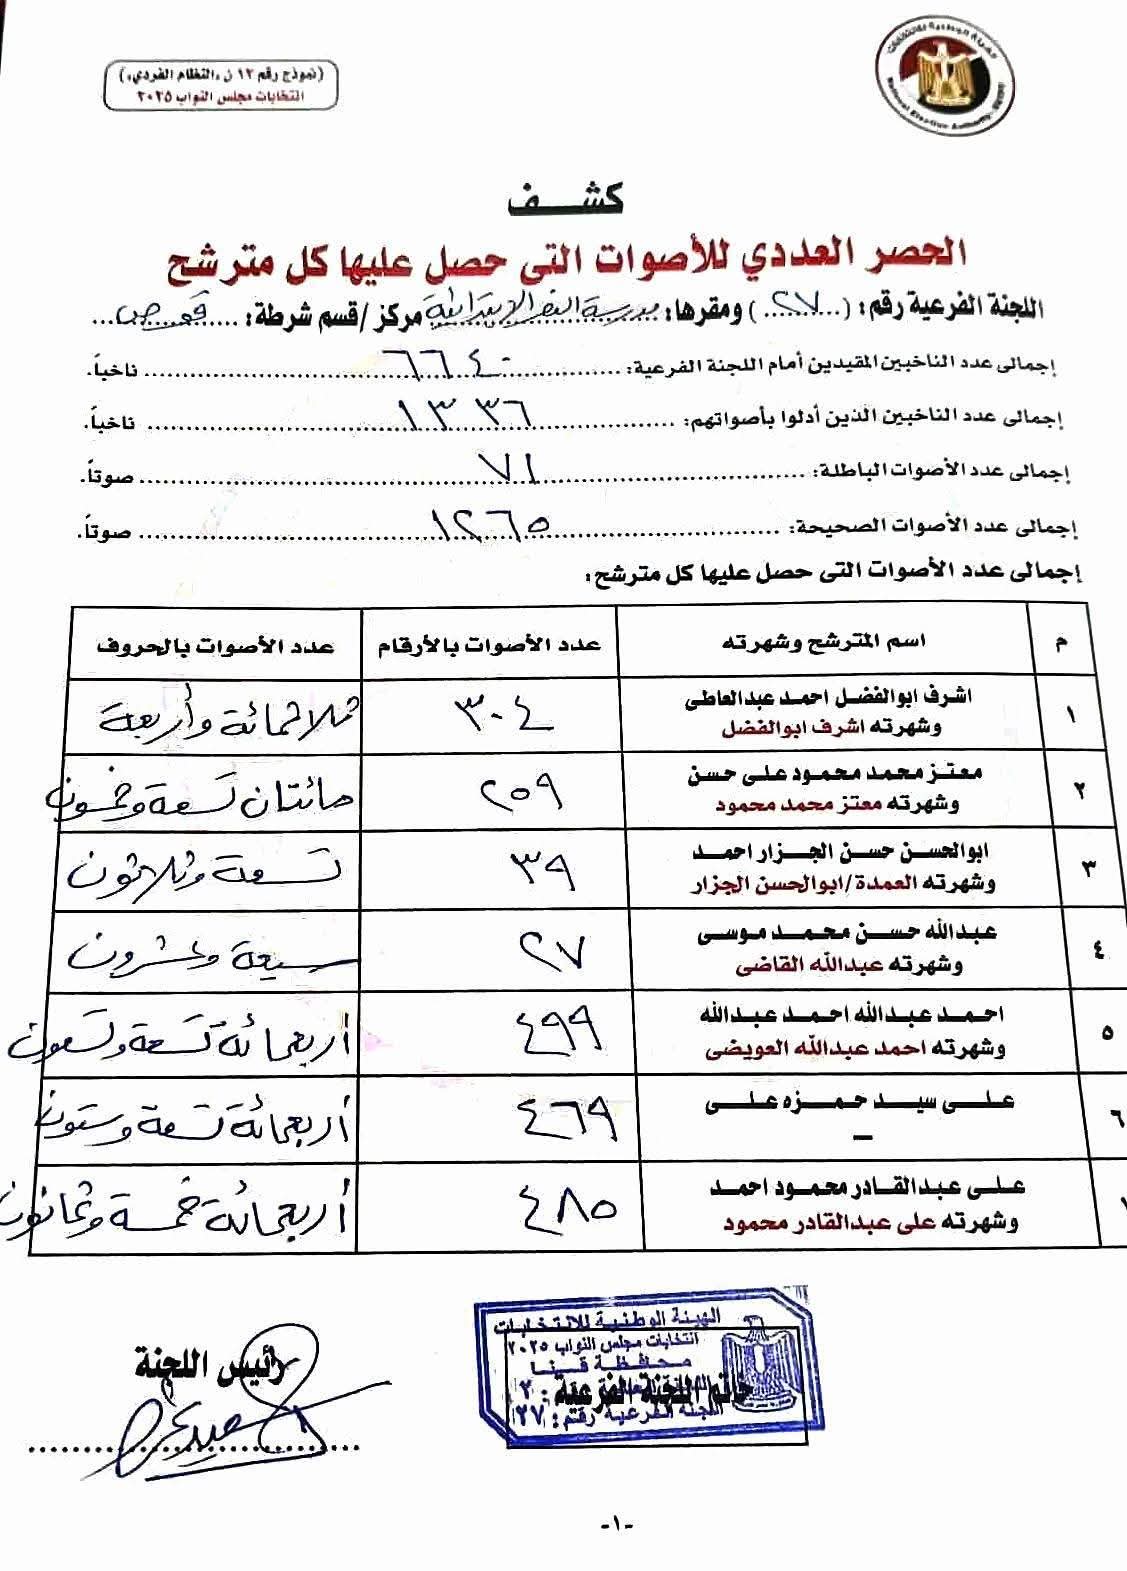 (نموذج رقم ١٢ ن «النظام الفردي»)
انتخابات مجلس النواب ٢٠٢٥
الهيئة الوطنية للانتخابات
National Election Authority - EGYPT
كشف
الحصر العددي للأصوات التى حصل عليها كل مترشح
اللجنة الفرعية رقم: (٢٧) ومقرها: مدرسة النصر الإبتدائية مركز / قسم شرطة: قوص
إجمالى عدد الناخبين المقيدين أمام اللجنة الفرعية: ٦٦٤٠ ناخباً.
إجمالى عدد الناخبين الذين أدلوا بأصواتهم: ١٣٣٦ ناخباً.
إجمالى عدد الأصوات الباطلة: ٧١ صوتاً.
إجمالى عدد الأصوات الصحيحة: ١٢٦٥ صوتاً.
إجمالى عدد الأصوات التى حصل عليها كل مترشح:
م اسم المترشح وشهرته عدد الأصوات بالأرقام عدد الأصوات بالحروف
١ اشرف ابوالفضل احمد عبدالعاطى ٣٠٤ ثلاثمائة وأربعة
وشهرته اشرف ابوالفضل
٢ معتز محمد محمود على حسن ٢٥٩ مائتان تسعة وخمسون
وشهرته معتز محمد محمود
٣ ابوالحسن حسن الجزار احمد ٣٩ تسعة وثلاثون
وشهرته العمدة/ابوالحسن الجزار
٤ عبدالله حسن محمد موسى ٢٧ سبعة وعشرون
وشهرته عبدالله القاضى
٥ احمد عبدالله احمد عبدالله ٤٩٩ أربعمائة تسعة وتسعون
وشهرته احمد عبدالله العويضى
٦ على سيد حمزه على ٤٦٩ أربعمائة تسعة وستون
–
على عبدالقادر محمود احمد ٤٨٥ أربعمائة خمسة وثمانون
وشهرته على عبدالقادر محمود
رئيس اللجنة
الهيئة الوطنية للانتخابات
انتخابات مجلس النواب ٢٠٢٥
محافظة قنا
خاتم اللجنة الفرعية:
اللجنة الفرعية رقم: ٢٧
-١-